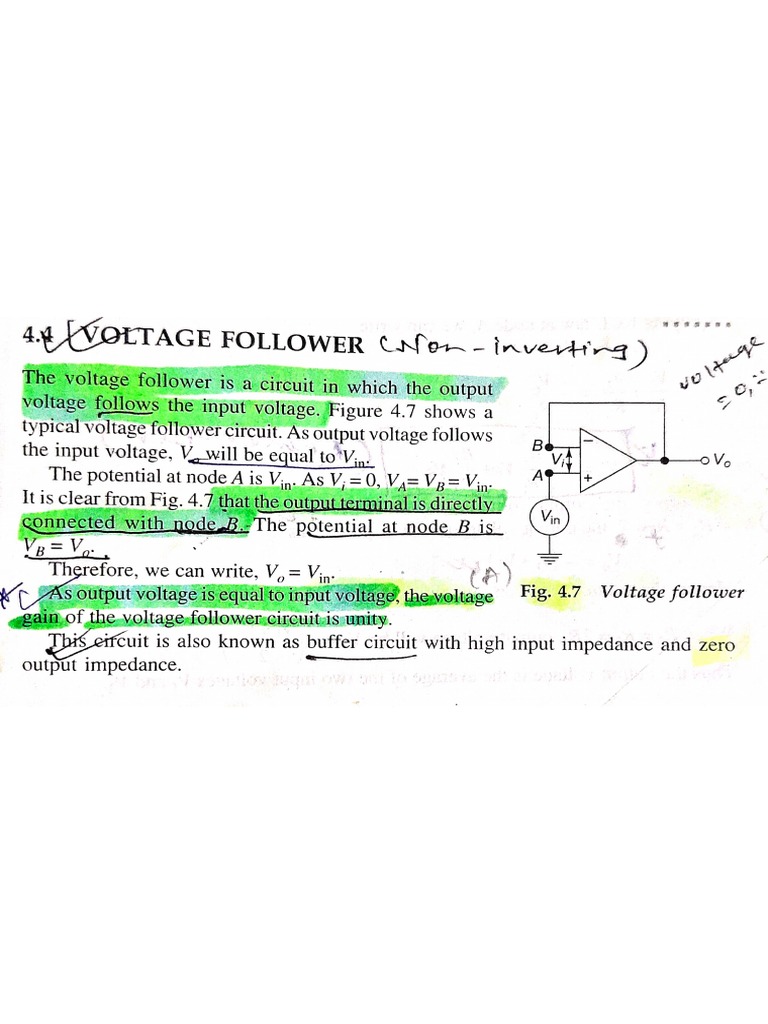 4.4 VOLTAGE FOLLOWER (Non-inverting)
The voltage follower is a circuit in which the output
voltage follows the input voltage. Figure 4.7 shows a
typical voltage follower circuit. As output voltage follows
the input voltage, Vo will be equal to Vin.
The potential at node A is Vin. As Vi = 0, VA = VB = Vin.
It is clear from Fig. 4.7 that the output terminal is directly
connected with node B. The potential at node B is
VB = Vo.
Therefore, we can write, Vo = Vin.
As output voltage is equal to input voltage, the voltage
gain of the voltage follower circuit is unity.
This circuit is also known as buffer circuit with high input impedance and zero
output impedance.
voltage
B
−
Vi
Vo
A
+
Vin
(A)
Fig. 4.7 Voltage follower